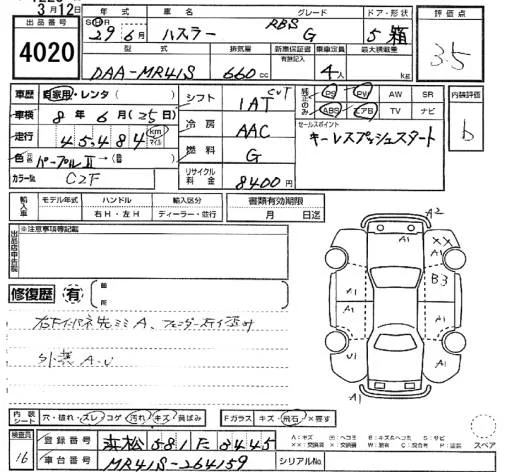 3月12日
出品番号
4020
年式
車名
グレード
ドア・形状
評価点
29年6月
ハスラー
RBS
G
5 箱
3.5
型式
排気量
新車保証書
有無記入
乗車定員
最大積載量
DAA-MR41S
660cc
4人
kg
車歴
自家用・レンタ( )
シフト
IAT CVT
装備品のみ
PS PW AW SR
ABS エアB TV ナビ
内装評価
b
車検
8年6月(25日)
走行
45,484 km マイル
冷房
AAC
セールスポイント
キーレスプッシュスタート
色
パープルII→( )
燃料
G
カラー№
C2F
リサイクル料金
8400円
輸入車
モデル年式
ハンドル
輸入区分
右H・左H
ディーラー・並行
書類有効期限
月 日迄
出品店申告欄
※注意事項等記載
修復歴
有
外装 A-U
A2
A1
XX
A1
A1
B3
A1
A1
U1
A1
A1
内装シート
穴・破れ・スレ・コゲ・汚れ・キズ・飛ばみ
Fガラス
キズ・飛石・×要す
検査員
16
登録番号
浜松 581 た 3445
車台番号
MR41S-264159
シリアルNo.
A:キズ
B:キズ&ヘコミ
S:サビ
スペア